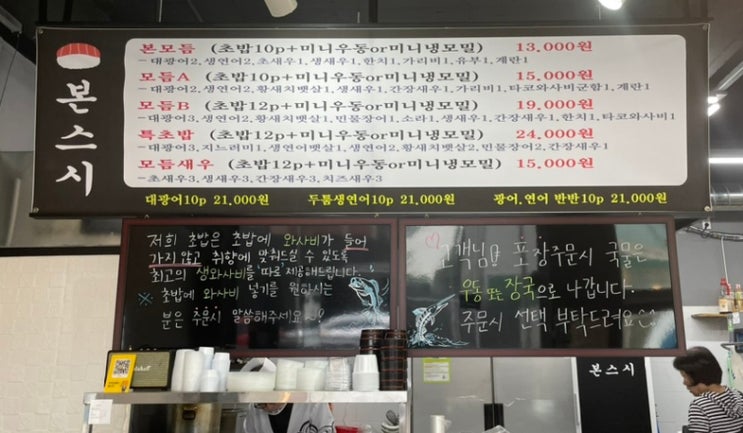 본스시
본모듬 (초밥10p+미니우동or미니냉모밀) 13,000원
- 대광어2, 생연어2, 초새우1, 생새우1, 한치1, 가리비1, 유부1, 계란1
모듬A (초밥10p+미니우동or미니냉모밀) 15,000원
- 대광어2, 생연어2, 황새치뱃살1, 생새우1, 간장새우1, 가리비1, 타코와사비군함1, 계란1
모듬B (초밥12p+미니우동or미니냉모밀) 19,000원
- 대광어3, 생연어2, 황새치뱃살1, 민물장어1, 소라1, 생새우1, 간장새우1, 한치1, 타코와사비1
특초밥 (초밥12p+미니우동or미니냉모밀) 24,000원
- 대광어3, 지느러미1, 생연어뱃살1, 생새우1, 간장새우1, 황새치뱃살2, 민물장어2, 간장연어1
모듬새우 (초밥12p+미니우동or미니냉모밀) 15,000원
- 초새우3, 생새우3, 간장새우3, 치즈새우3
대광어10p 21,000원 두툼생연어10p 21,000원 광어,연어 반반10p 21,000원
저희 초밥은 초밥에 와사비가 들어
가지 않고 취향에 맞춰드실 수 있도록
최고의 생와사비를 따로 제공해드립니다.
※ 초밥에 와사비 넣기를 원하시는
분은 주문시 말씀해주세요~!
고객님!! 포장주문시 국물은
우동 또는 장국으로 나갑니다.
주문시 선택 부탁드려요
본스시